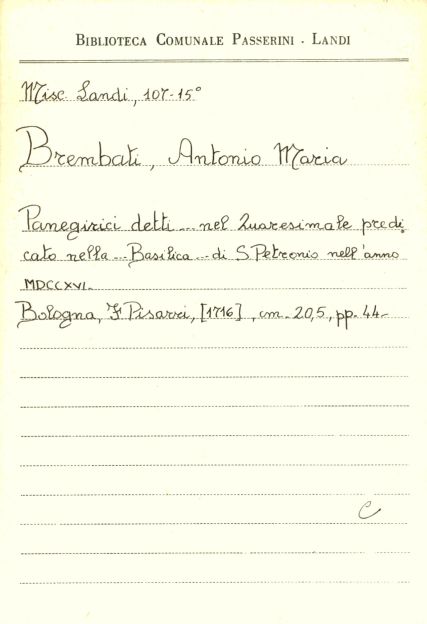 BIBLIOTECA COMUNALE PASSERINI - LANDI
Misc. Landi, 107-15°
Brembati, Antonio Maria
Panegirici detti ... nel Quaresimale predi,
cato nella ... Basilica ... di S. Petronio nell'anno
MDCCXVI.
Bologna, F Pisarri, [1716], cm. 20,5, pp. 44.
C